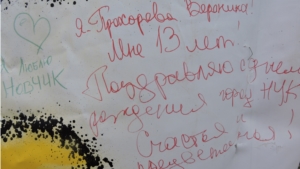 Я Прохорова Вероника!
Мне 13 лет!
Поздравляю с днём
рождения город НЧК
Счастья и
процветания!
Я люблю
НОВЧИК